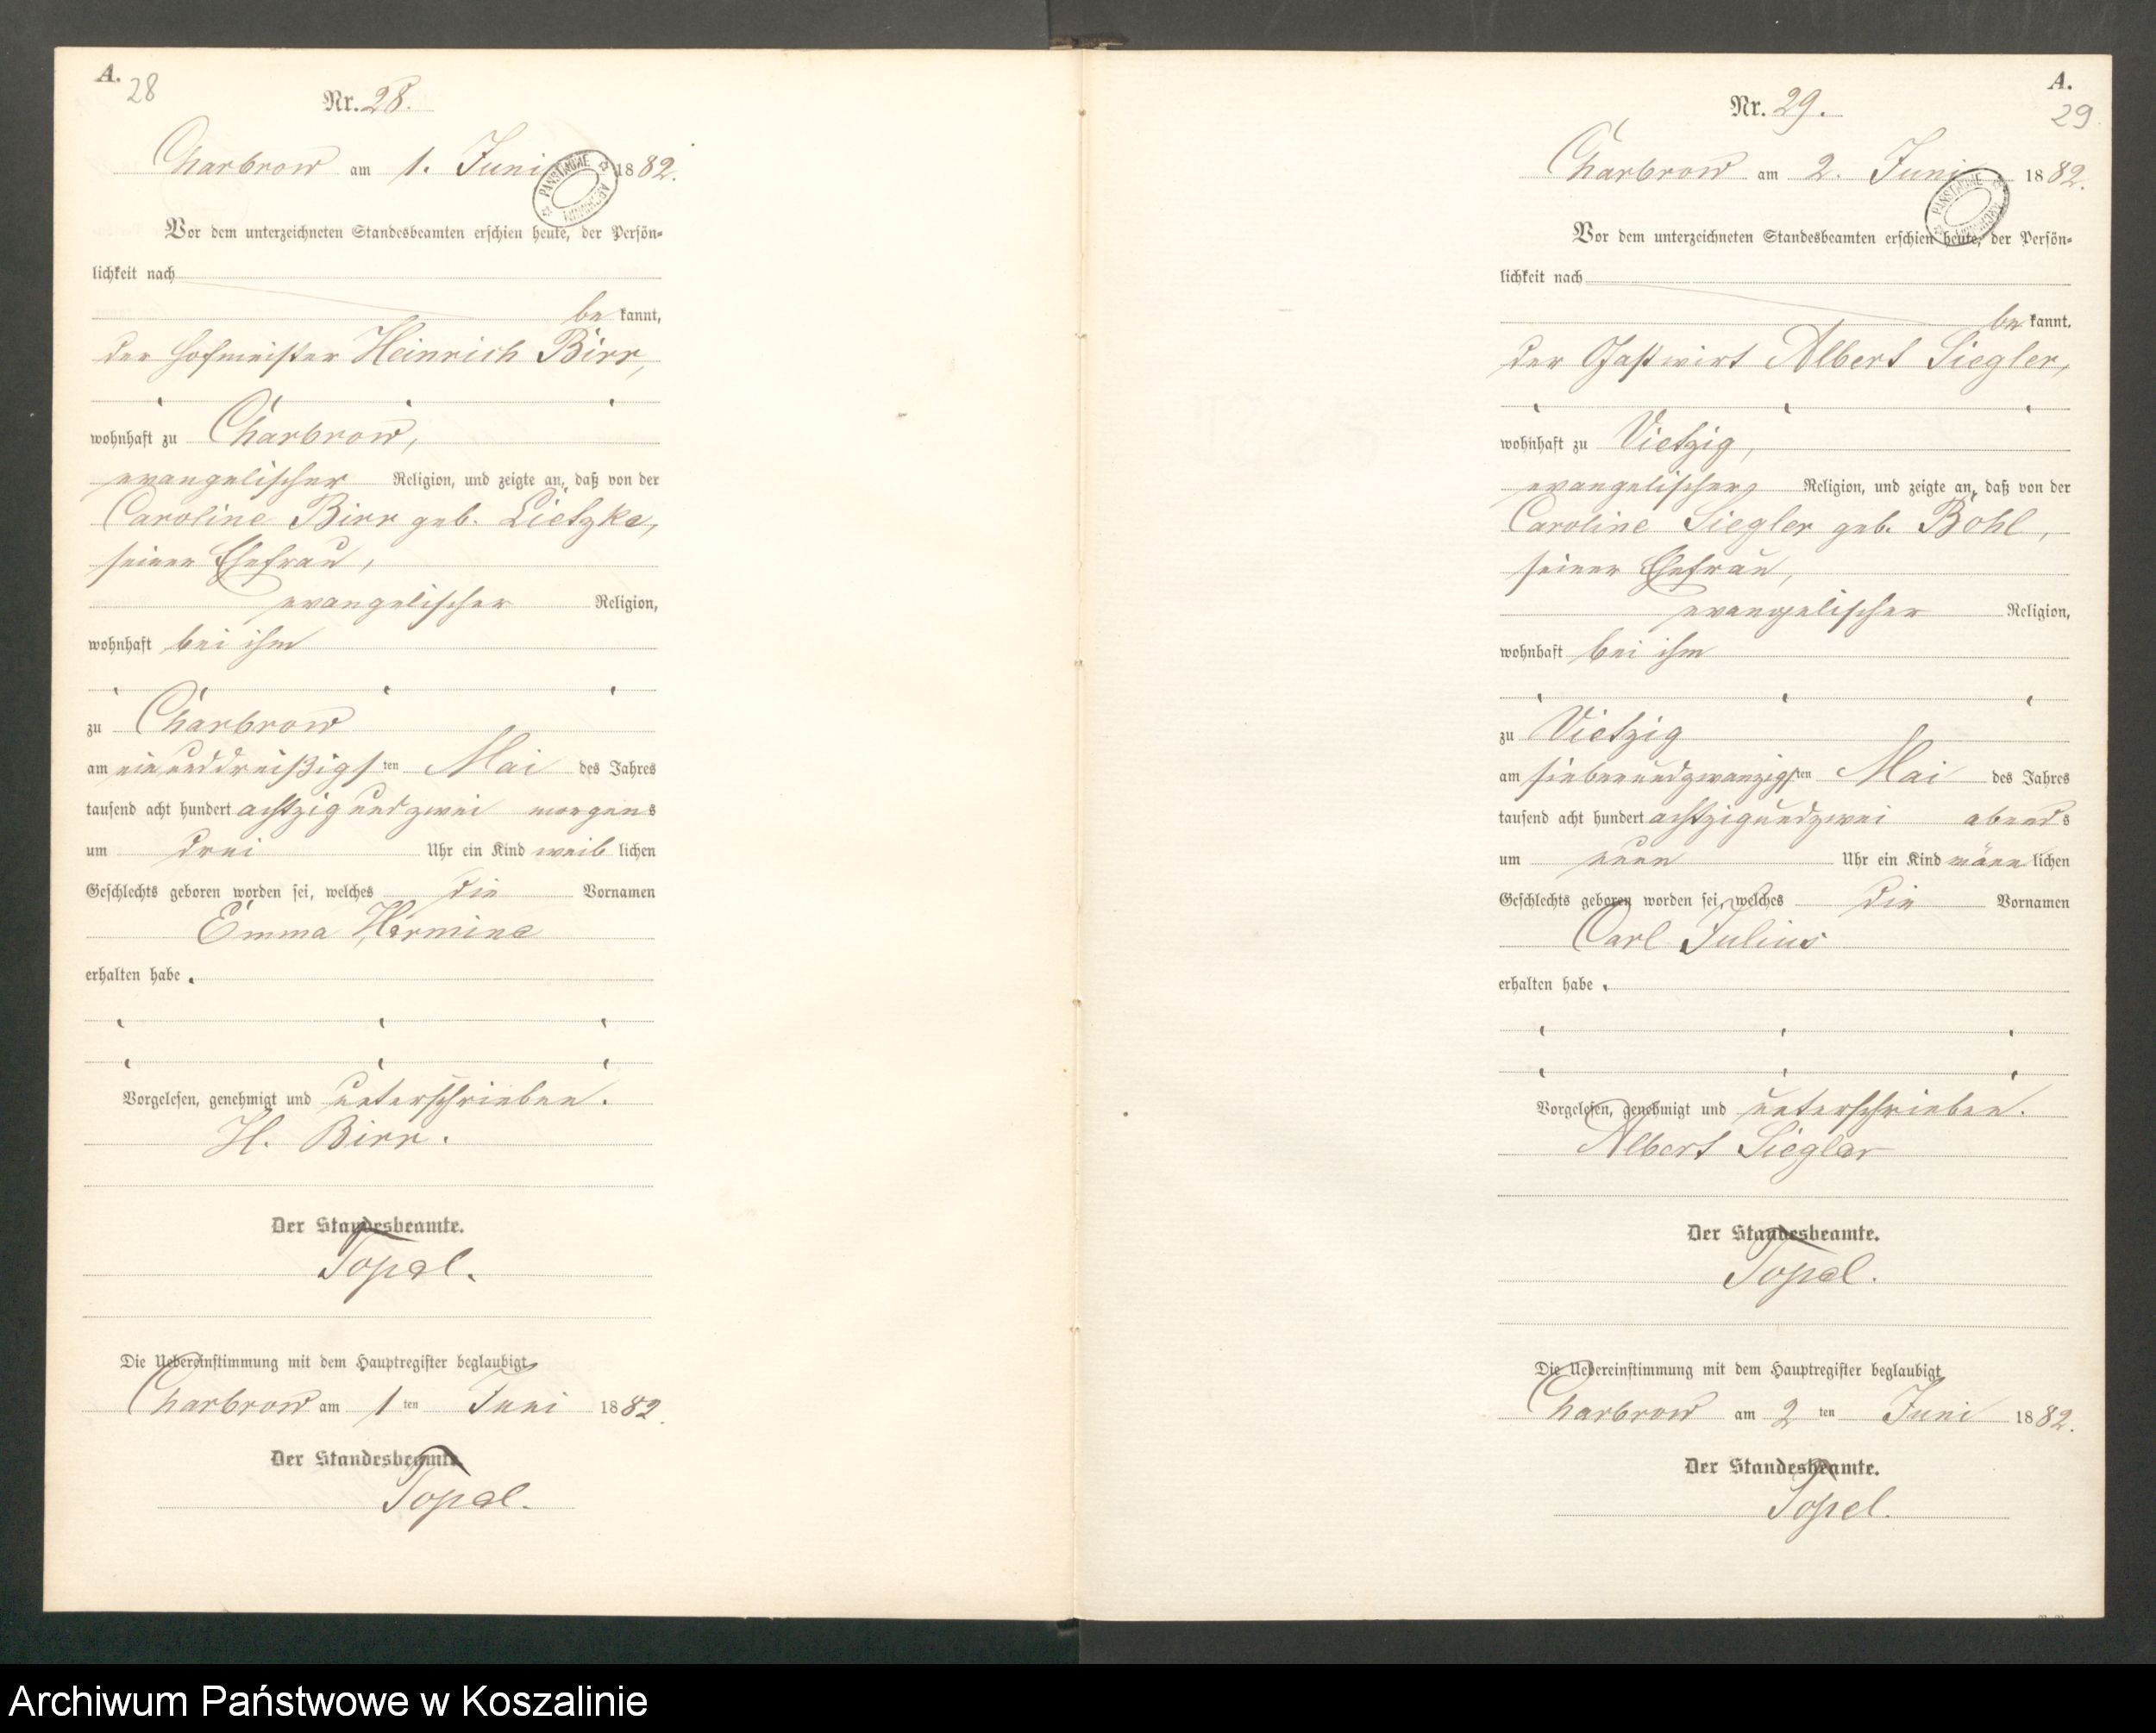 A.
28
Nr. 28.
Charbrow am 1. Juni 1882.
PAŃSTWOWE ARCHIWUM
Vor dem unterzeichneten Standesbeamten erschien heute, der Persön=
lichkeit nach
be kannt,
der Hofmeister Heinrich Birr,
wohnhaft zu Charbrow,
evangelischer Religion, und zeigte an, daß von der
Caroline Birr geb. Lietzke,
seiner Ehefrau,
evangelischer Religion,
wohnhaft bei ihm
zu Charbrow
am einunddreißigsten Mai des Jahres
tausend acht hundert achtzig und zwei morgens
um drei Uhr ein Kind weib lichen
Geschlechts geboren worden sei, welches die Vornamen
Emma Hermine
erhalten habe.
Vorgelesen, genehmigt und unterschrieben.
H. Birr.
Der Standesbeamte.
Topel.
Die Uebereinstimmung mit dem Hauptregister beglaubigt
Charbrow am 1ten Juni 1882.
Der Standesbeamte.
Topel.
A.
29
Nr. 29.
Charbrow am 2. Juni 1882.
PAŃSTWOWE ARCHIWUM
Vor dem unterzeichneten Standesbeamten erschien heute, der Persön=
lichkeit nach
be kannt,
der Gastwirt Albert Siegler,
wohnhaft zu Vietzig,
evangelischer Religion, und zeigte an, daß von der
Caroline Siegler geb. Bohl,
seiner Ehefrau,
evangelischer Religion,
wohnhaft bei ihm
zu Vietzig
am siebenundzwanzigsten Mai des Jahres
tausend acht hundert achtzigundzwei abends
um neun Uhr ein Kind männ lichen
Geschlechts geboren worden sei, welches die Vornamen
Carl Julius
erhalten habe.
Vorgelesen, genehmigt und unterschrieben.
Albert Siegler
Der Standesbeamte.
Topel.
Die Uebereinstimmung mit dem Hauptregister beglaubigt
Charbrow am 2ten Juni 1882.
Der Standesbeamte.
Topel.
Archiwum Państwowe w Koszalinie